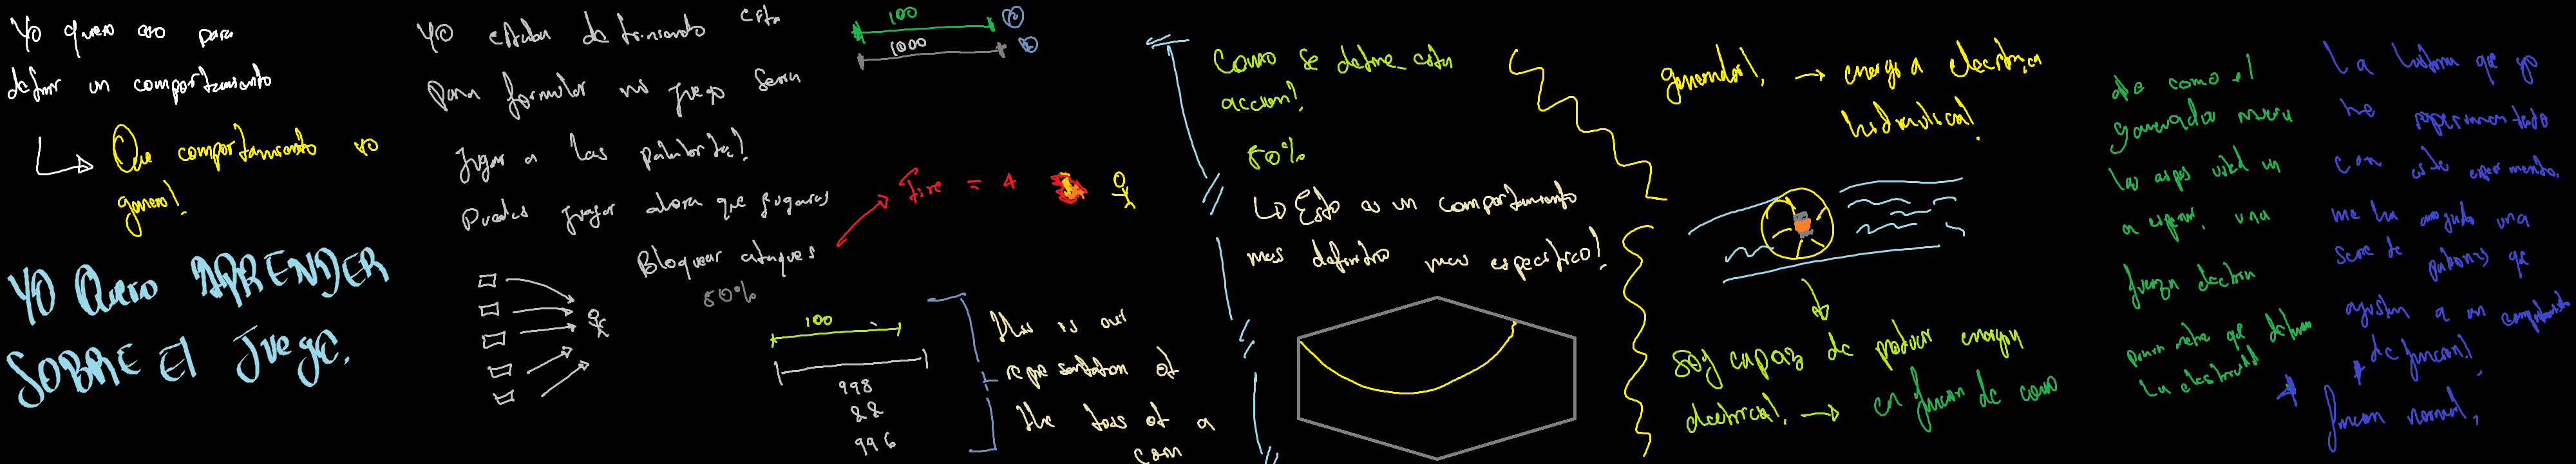 Yo quiero eso para
definir un comportamiento
Que comportamiento yo
genero!
YO Quiero APRENDER
SOBRE El Juego.
Yo estaba determinando esta
Para formular mi juego seria
Jugar a las palabrita!
Puedes jugar ahora que jugaras
Bloquear ataques
50%
100
1000
Fire = 4
100
998
88
996
this is our
representation of
the toss of a
coin
Como se define esta
accion!
50%
Esto es un comportamiento
mas definitivo mas especifico!
generador! → energia electrica
hidraulica!
Soy capaz de producir energia
electrica! → en funcion de como
de como el
generador mueve
las aspas
a esperar una
fuerza electrica
que
La historia que yo
he experimentado
con este experimento.
me ha arrojado una
serie de patrones que
ajustan a un comportamiento
de funcion!
funcion normal.